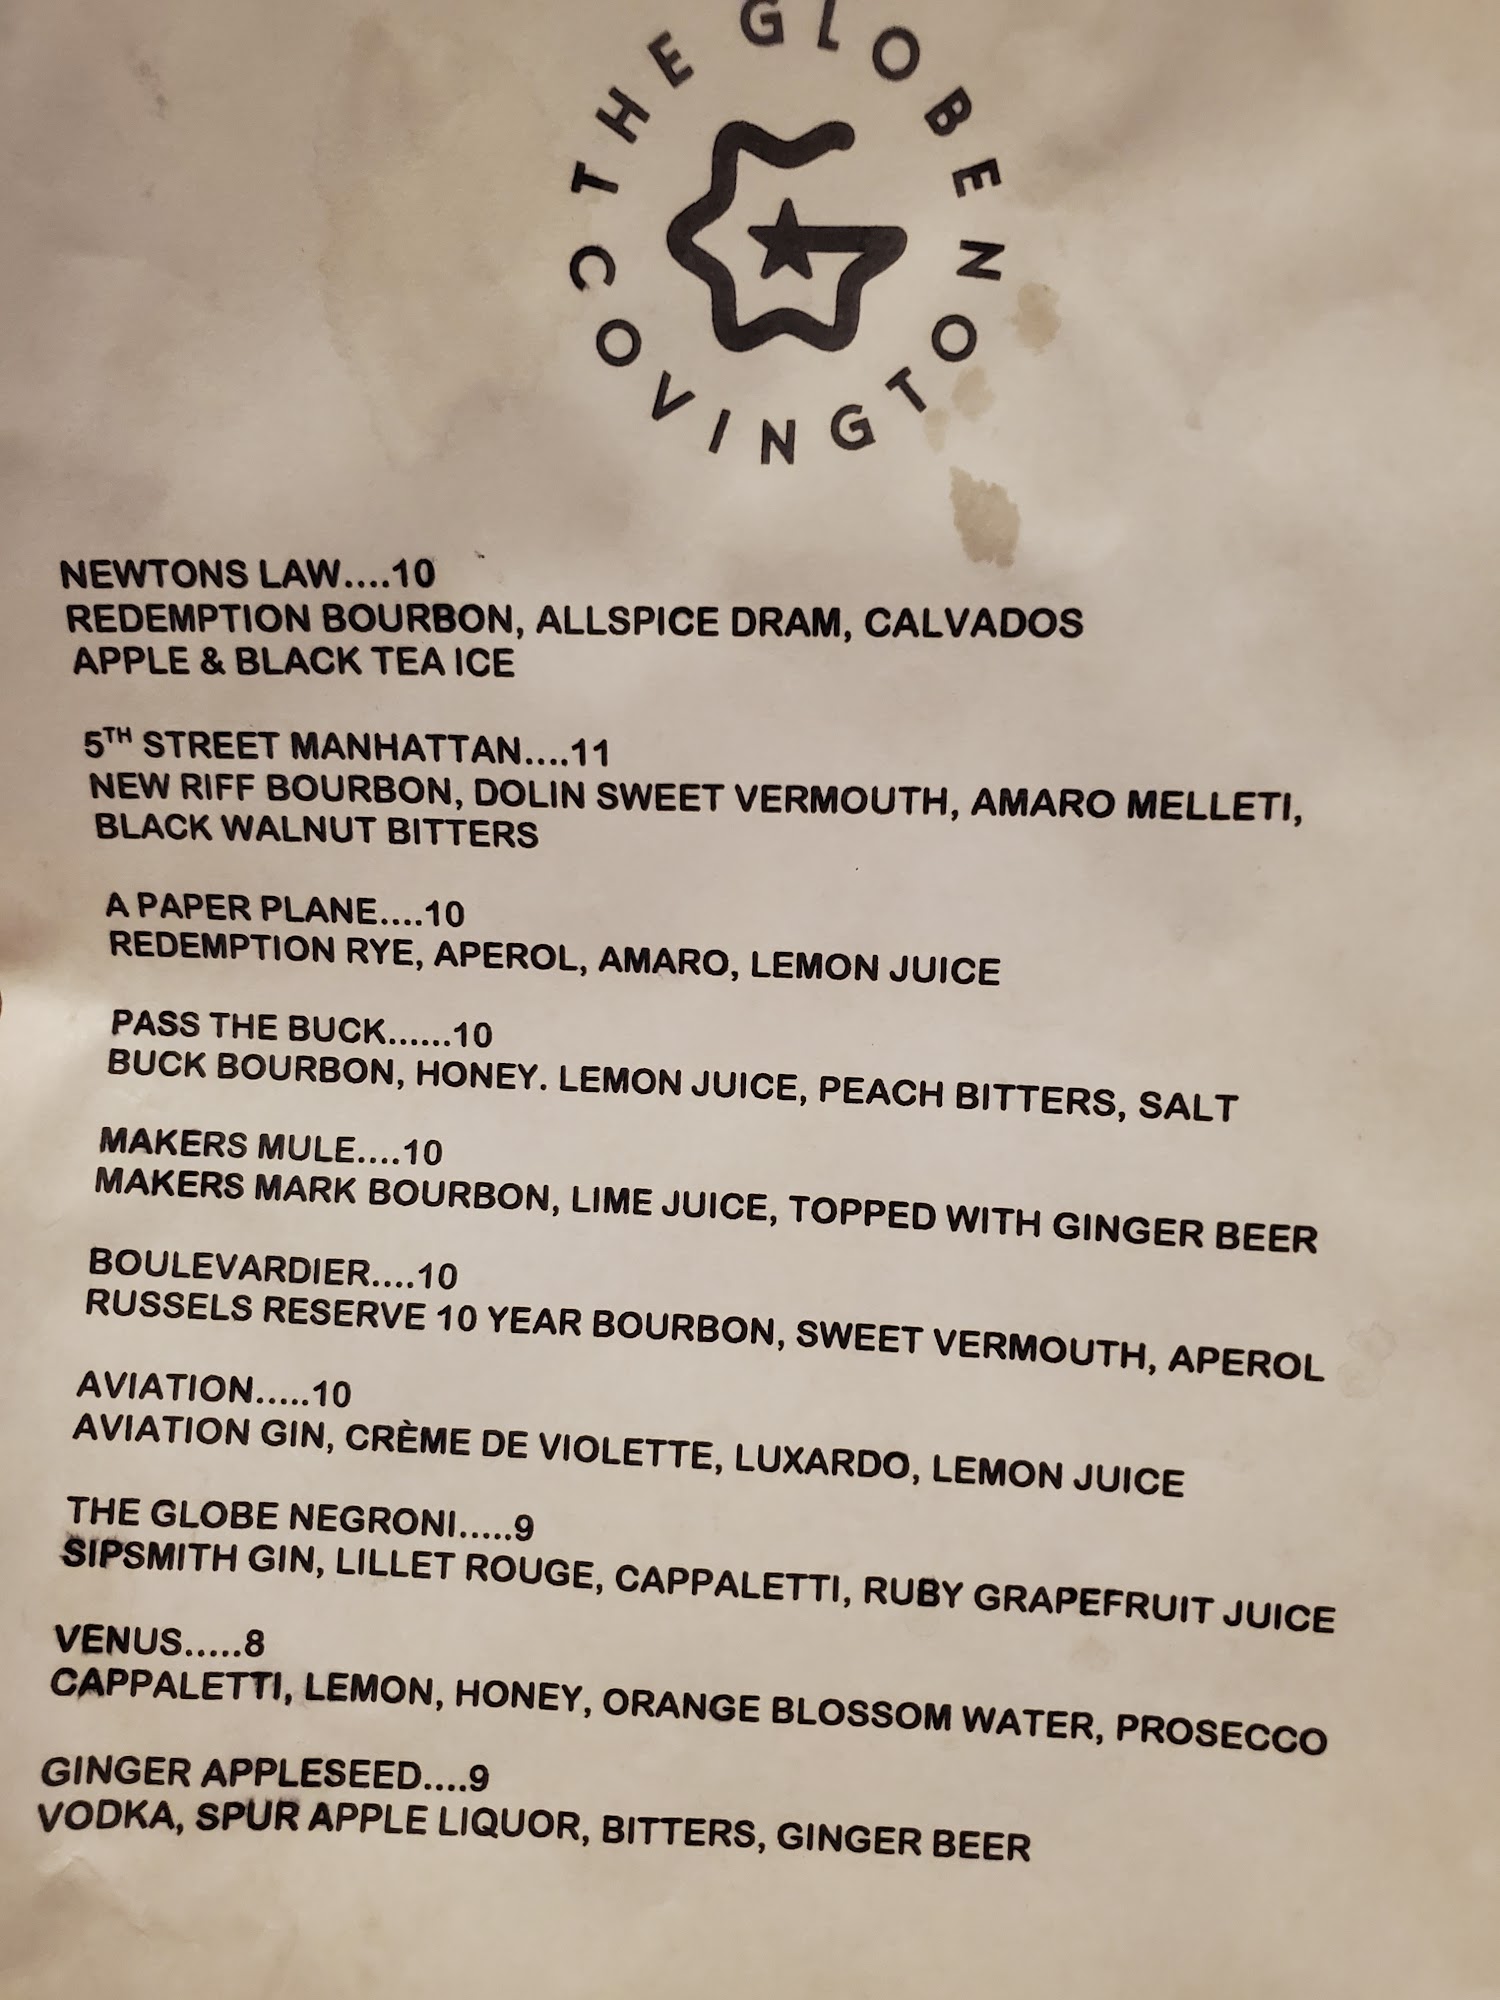 THE GLOBE
COVINGTON
NEWTONS LAW....10
REDEMPTION BOURBON, ALLSPICE DRAM, CALVADOS
APPLE & BLACK TEA ICE
5TH STREET MANHATTAN....11
NEW RIFF BOURBON, DOLIN SWEET VERMOUTH, AMARO MELLETI,
BLACK WALNUT BITTERS
A PAPER PLANE....10
REDEMPTION RYE, APEROL, AMARO, LEMON JUICE
PASS THE BUCK......10
BUCK BOURBON, HONEY. LEMON JUICE, PEACH BITTERS, SALT
MAKERS MULE....10
MAKERS MARK BOURBON, LIME JUICE, TOPPED WITH GINGER BEER
BOULEVARDIER....10
RUSSELS RESERVE 10 YEAR BOURBON, SWEET VERMOUTH, APEROL
AVIATION.....10
AVIATION GIN, CRÈME DE VIOLETTE, LUXARDO, LEMON JUICE
THE GLOBE NEGRONI.....9
SIPSMITH GIN, LILLET ROUGE, CAPPALETTI, RUBY GRAPEFRUIT JUICE
VENUS.....8
CAPPALETTI, LEMON, HONEY, ORANGE BLOSSOM WATER, PROSECCO
GINGER APPLESEED....9
VODKA, SPUR APPLE LIQUOR, BITTERS, GINGER BEER